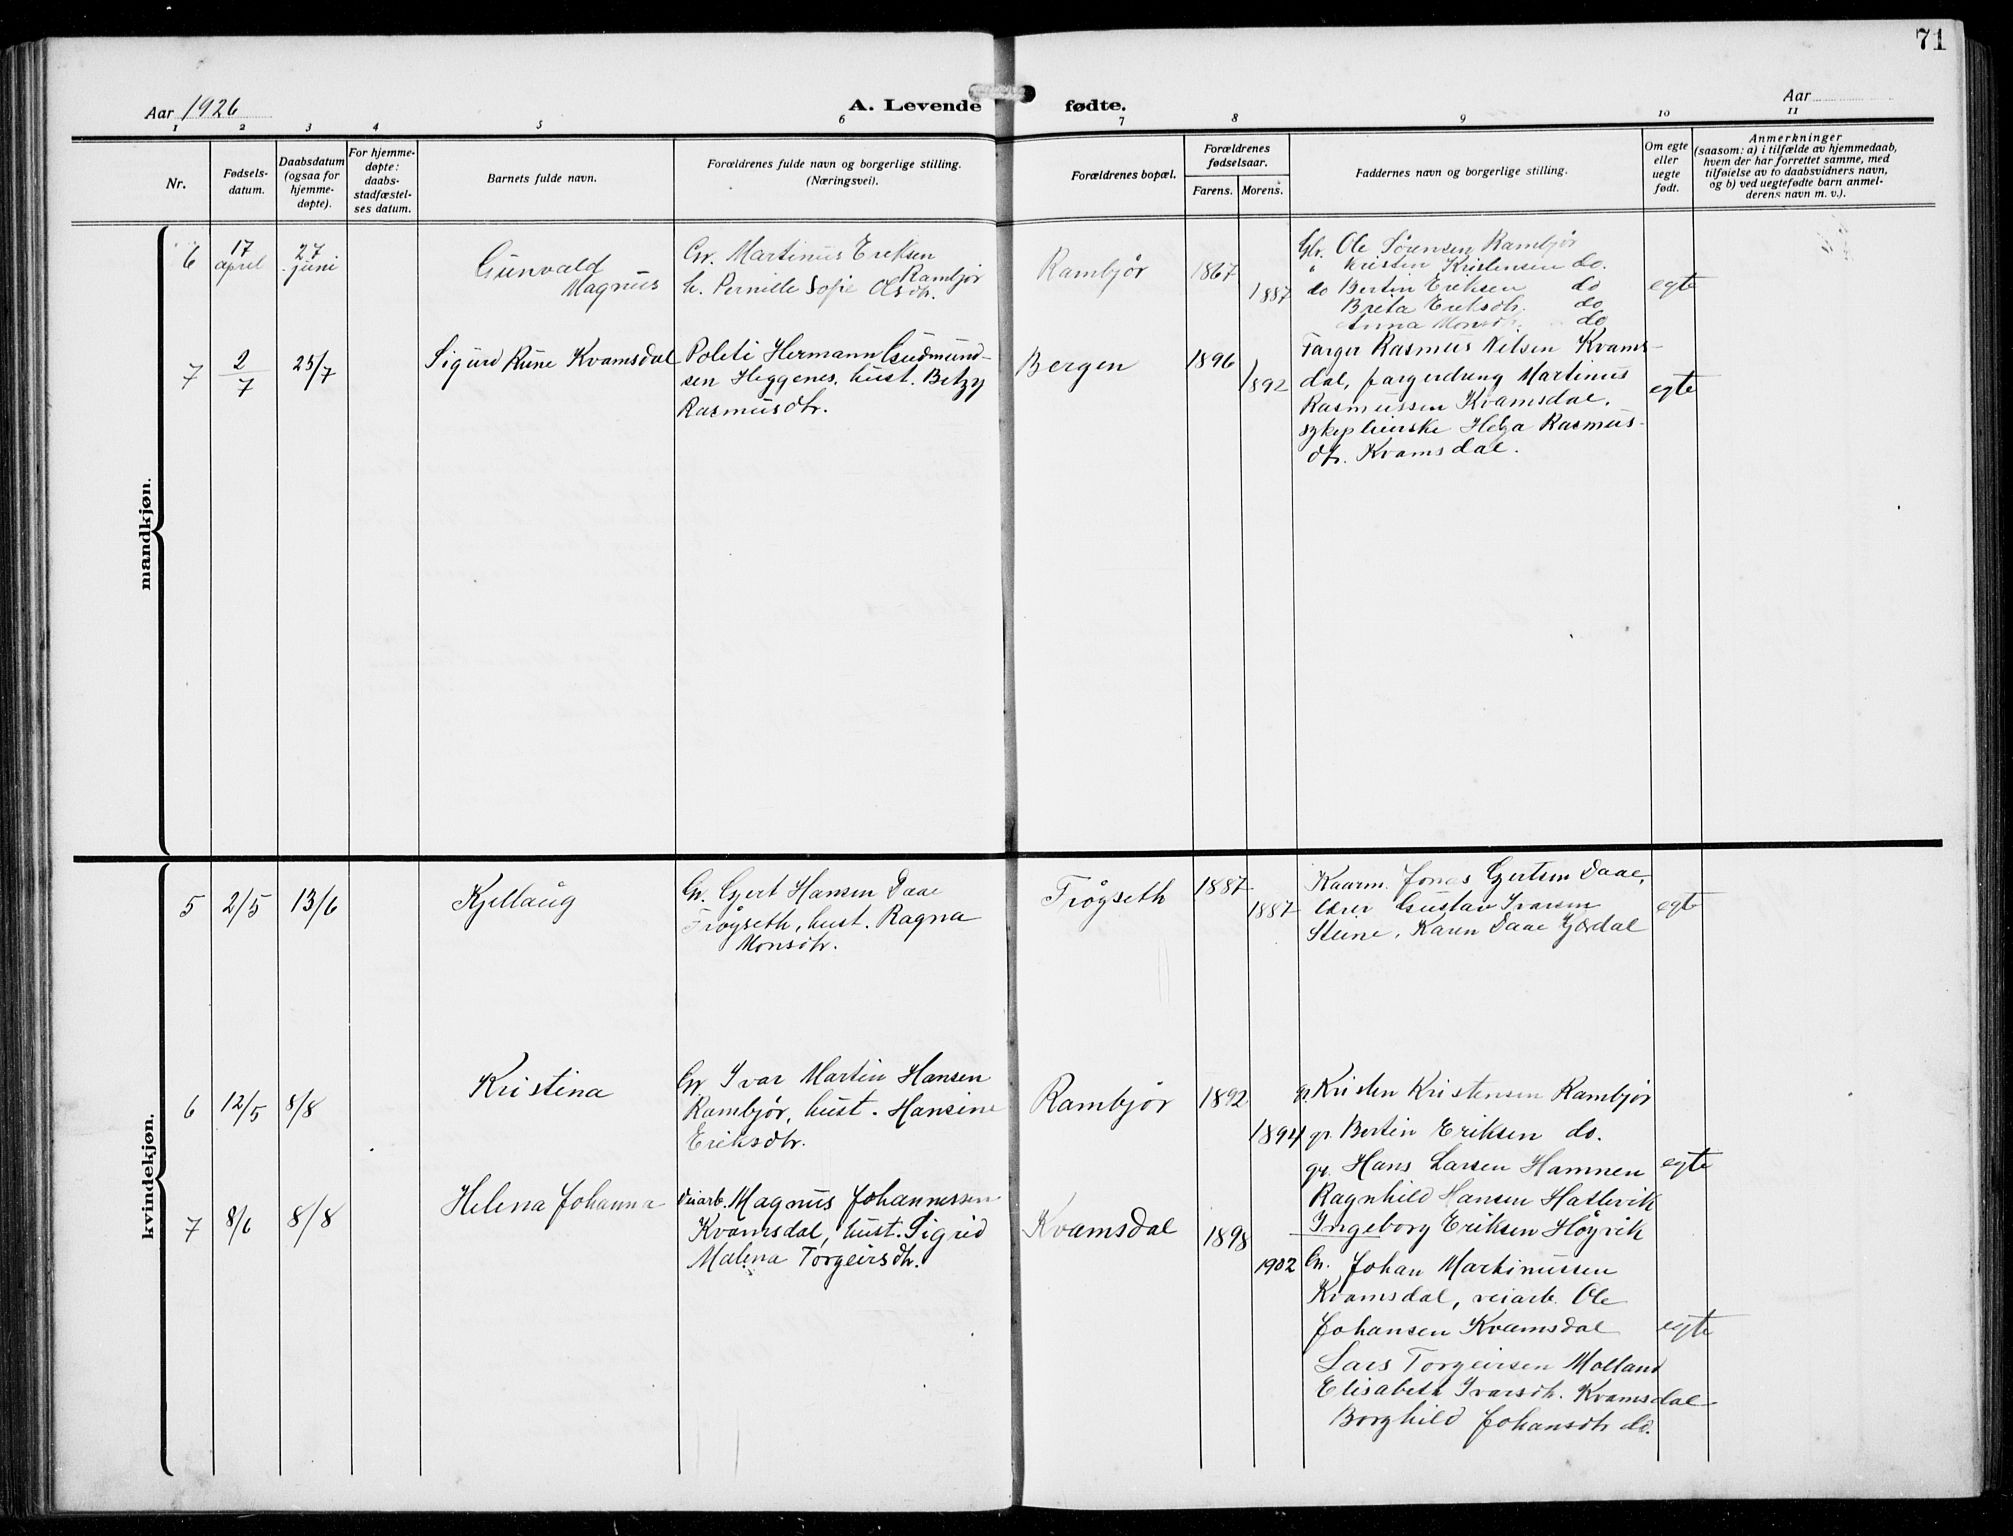 71
Aar 1926
A. Levende fødte.
Aar
1 2 3 4 5 6 7 8 9 10 11
Nr.
Fødsels-
datum.
Daabsdatum
(ogsaa for
hjemme-
døpte).
For hjemme-
døpte:
daabs-
stadfæstel-
ses datum.
Barnets fulde navn.
Forældrenes fulde navn og borgerlige stilling.
(Næringsvei).
Forældrenes bopæl.
Forældrenes
fødselsaar.
Farens. Morens.
Faddernes navn og borgerlige stilling.
Om egte
eller
uegte
født.
Anmerkninger
(saasom: a) i tilfælde av hjemmedaab,
hvem der har forrettet samme, med
tilføielse av to daabsvidners navn,
og b) ved uegtefødte barn anmel-
derens navn m. v.).
mandkjøn.
6
17
april
27
juni
Gunvald
Magnus
Gr. Martinus Eriksen
Rambjør
h. Pernille Sofie Olsdtr.
Rambjør
1867
1887
Gbr. Ole Sørensen Rambjør
" Kristen Kristensen do.
do Bertin Eriksen do
Brita Eriksdtr. do
Anna Monsdtr. do
egte
7
2/7
25/7
Sigurd Rune Kvamsdal
Politi Hermann Gudmund-
sen Heggenes, hust. Betzy
Rasmusdtr.
Bergen
1896
1892
Farger Rasmus Nilsen Kvams-
dal, fargerdreng Martinus
Rasmussen Kvamsdal,
sykepleierske Helga Rasmus-
dtr. Kvamsdal.
egte
kvindekjøn.
5
2/5
13/6
Kjellaug
Gr. Gjert Hansen Daae
Frøyseth, hust. Ragna
Monsdtr.
Frøyseth
1887
1887
Kaarm. Jonas Gjertsen Daae,
lærer Gustav Ivarsen
Steine, Karen Daae Gjærdal
egte
6
12/5
8/8
Kristina
Gr. Ivar Martin Hansen
Rambjør, hust. Hansine
Eriksdtr.
Rambjør
1892
1894
gr. Kristen Kristensen Rambjør
gr. Bertin Eriksen do.
gr. Hans Larsen Hamnen
Ragnhild Hansen Hatlevik
Ingeborg Eriksen Høyvik
egte
7
8/6
8/8
Helena Johanna
Veiarb. Magnus Johannessen
Kvamsdal, hust. Sigrid
Malena Torgeirsdtr.
Kvamsdal
1898
1902
Gr. Johan Martinussen
Kvamsdal, veiarb. Ole
Johansen Kvamsdal
Lars Torgeirsen Molland
Elisabeth Ivarsdtr. Kvamsdal
Borghild Johansdtr do.
egte